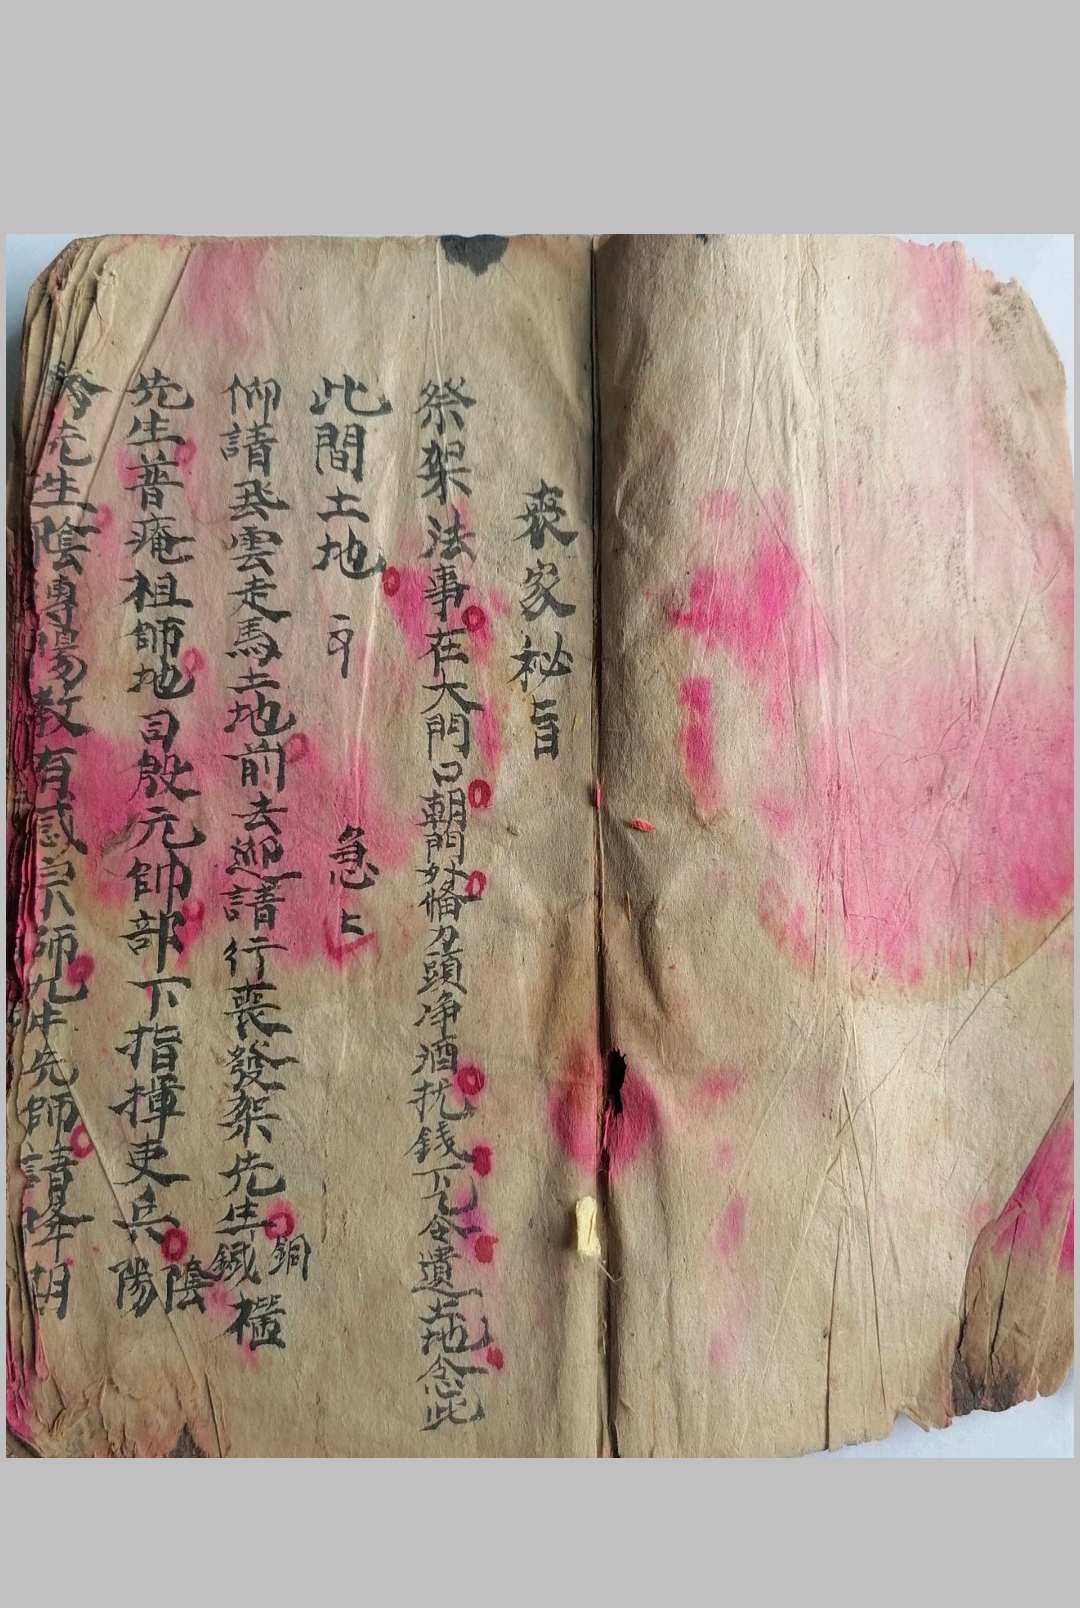 喪家秘旨
祭架法事在大門口朝門外備刀頭净酒扰錢下令遣土地念此
此間土地 急上
仰請飛雲走馬土地前去迎請行喪發架先生銅鐡
先生普庵祖師地司殷元帥部下指揮吏兵陰陽
先生陰傳陽教有感宗師九牛先師請降